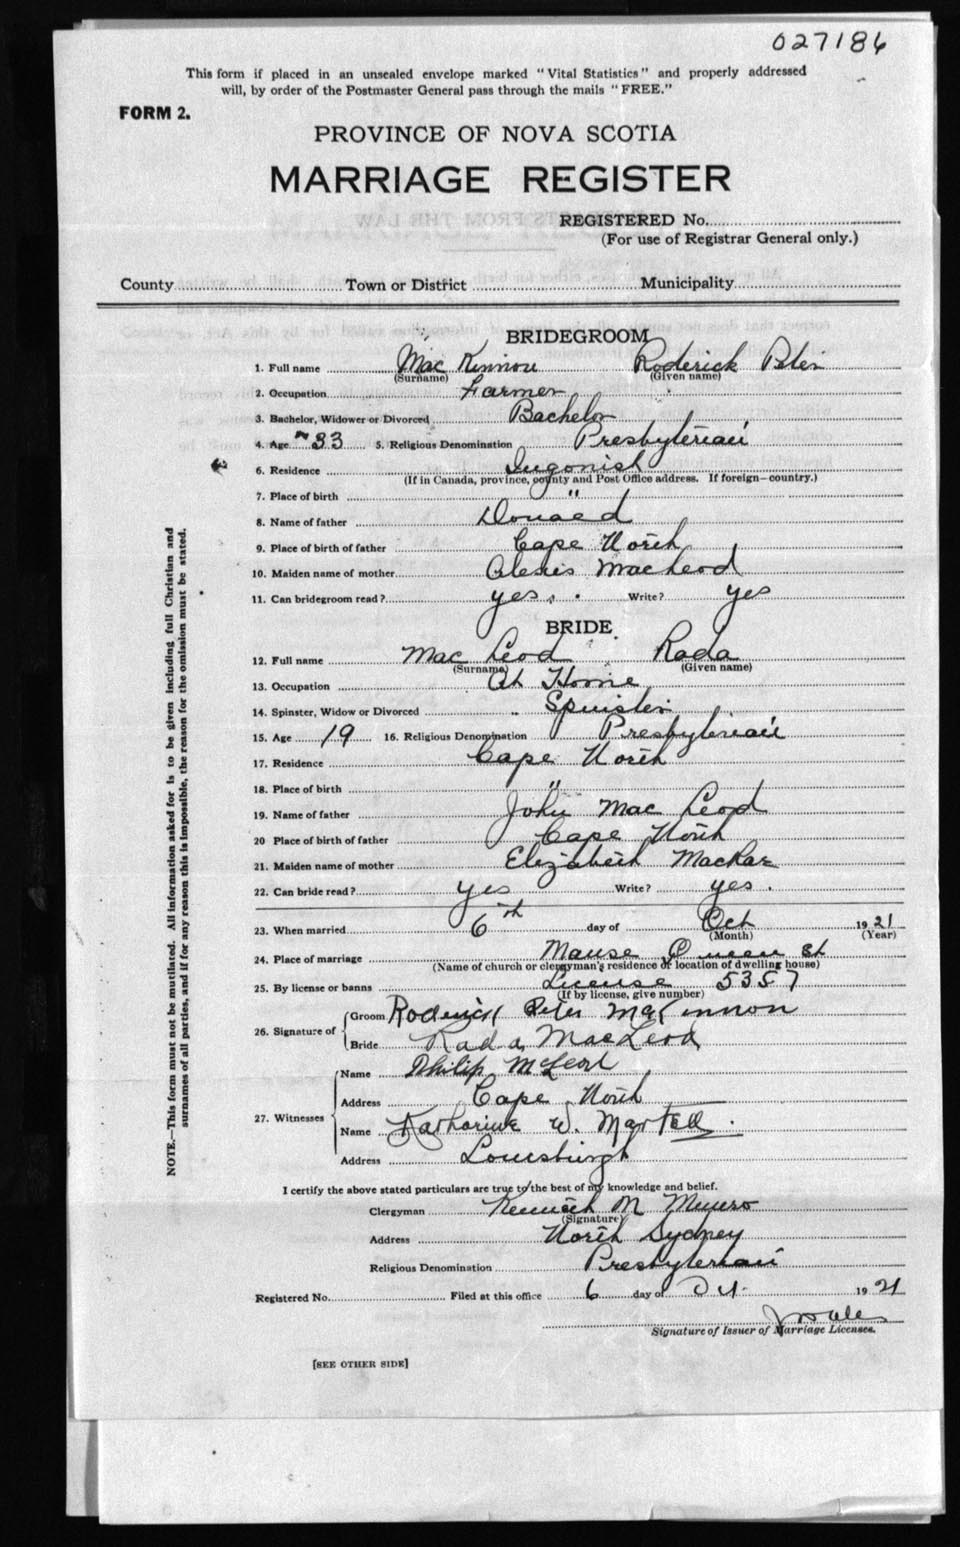 027186
This form if placed in an unsealed envelope marked "Vital Statistics" and properly addressed
will, by order of the Postmaster General pass through the mails "FREE."
FORM 2.
PROVINCE OF NOVA SCOTIA
MARRIAGE REGISTER
REGISTERED No.
(For use of Registrar General only.)
County Town or District Municipality
BRIDEGROOM
1. Full name Mac Kinnon Roderick Peter
(Surname) (Given name)
2. Occupation Farmer
3. Bachelor, Widower or Divorced Bachelor
4. Age 33 5. Religious Denomination Presbyterian
6. Residence Ingonish
(If in Canada, province, county and Post Office address. If foreign—country.)
7. Place of birth "
8. Name of father Donald
9. Place of birth of father Cape North
10. Maiden name of mother MacLeod
11. Can bridegroom read? yes Write? yes
BRIDE
12. Full name Mac Leod Rada
(Surname) (Given name)
13. Occupation At Home
14. Spinster, Widow or Divorced Spinster
15. Age 19 16. Religious Denomination Presbyterian
17. Residence Cape North
18. Place of birth "
19. Name of father John Mac Leod
20 Place of birth of father Cape North
21. Maiden name of mother Elizabeth MacRae
22. Can bride read? yes Write? yes.
23. When married 6th day of Oct 1921
(Month) (Year)
24. Place of marriage Manse Queen St
(Name of church or clergyman's residence or location of dwelling house)
25. By license or banns License 5357
(If by license, give number)
26. Signature of Groom Roderick Peter MacKinnon
Bride Rada MacLeod
27. Witnesses Name Philip McLeod
Address Cape North
Name Katharine W. Martell.
Address Louisburgh
I certify the above stated particulars are true to the best of my knowledge and belief.
Clergyman Kenneth M Munro
(Signature)
Address North Sydney
Religious Denomination Presbyterian
Registered No. Filed at this office 6 day of Oct. 1921
Signature of Issuer of Marriage Licenses.
[SEE OTHER SIDE]
NOTE.—This form must not be mutilated. All information asked for is to be given including full Christian and
surnames of all parties, and if for any reason this is impossible, the reason for the omission must be stated.